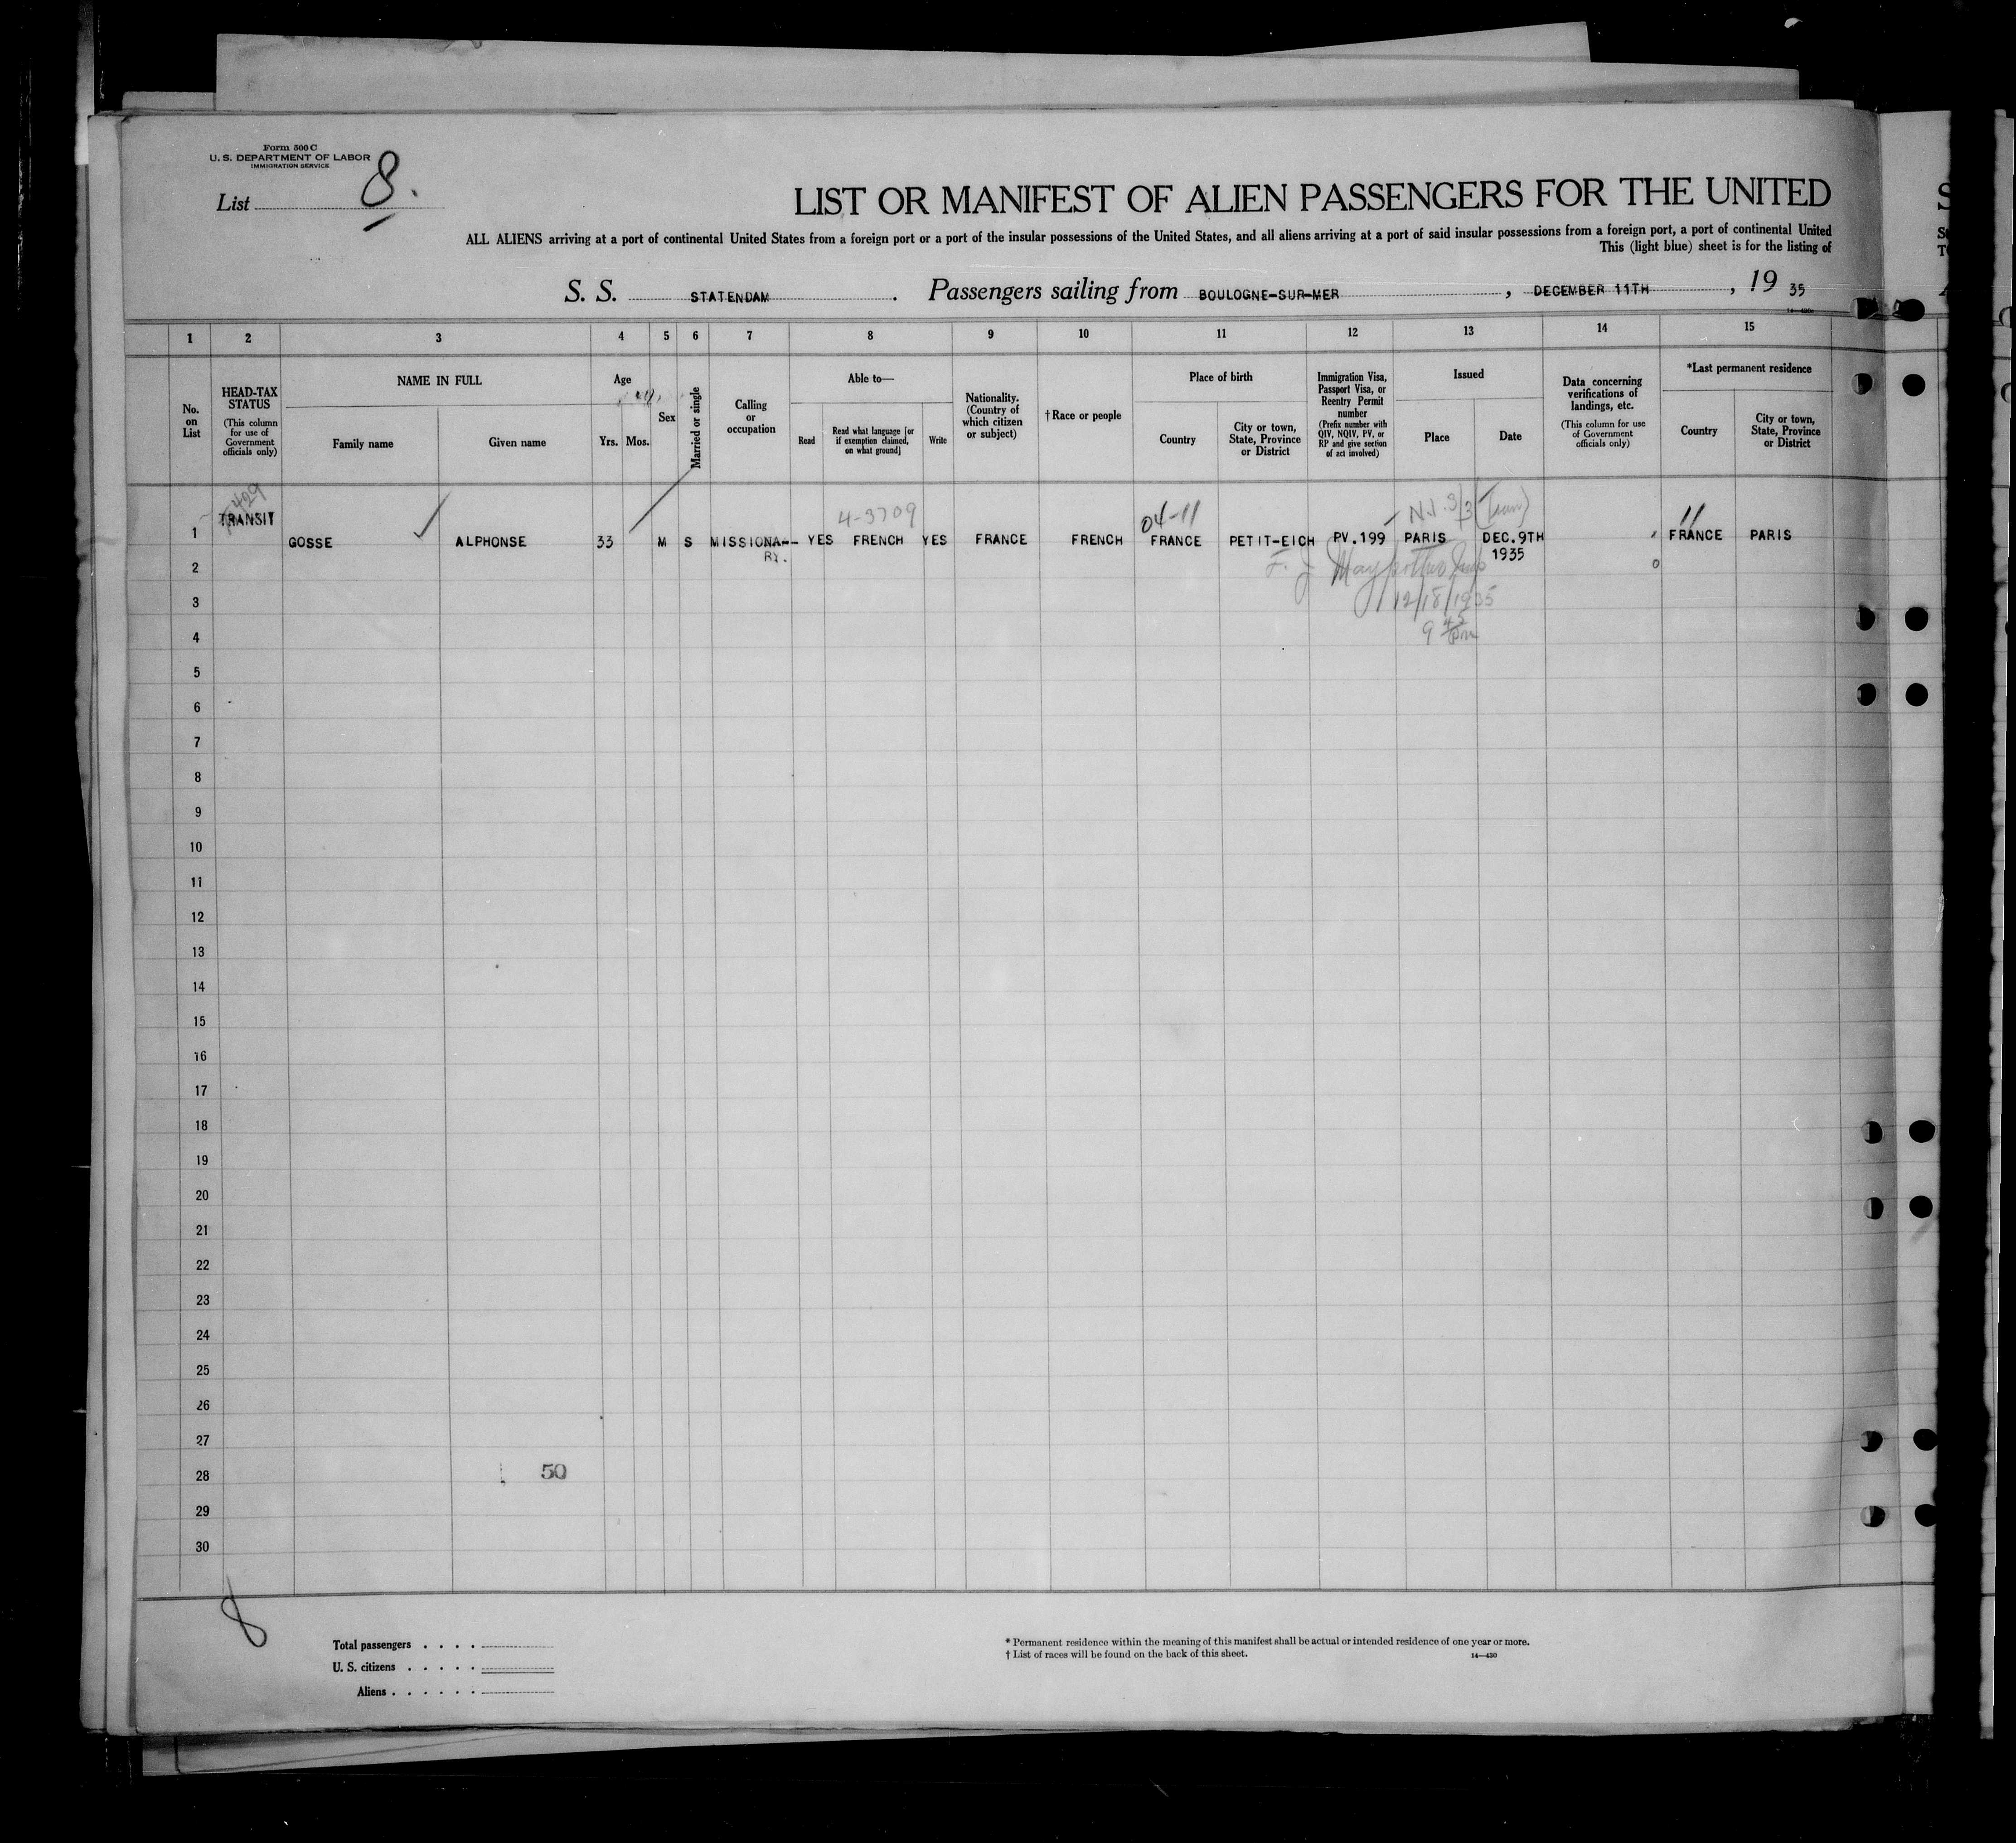 Form 500 C
U. S. DEPARTMENT OF LABOR
IMMIGRATION SERVICE
List 8.
LIST OR MANIFEST OF ALIEN PASSENGERS FOR THE UNITED
ALL ALIENS arriving at a port of continental United States from a foreign port or a port of the insular possessions of the United States, and all aliens arriving at a port of said insular possessions from a foreign port, a port of continental United
This (light blue) sheet is for the listing of
S. S. STATENDAM. Passengers sailing from BOULOGNE-SUR-MER, DECEMBER 11TH, 19 35
1 2 3 4 5 6 7 8 9 10 11 12 13 14 15
No. on List
HEAD-TAX STATUS
(This column for use of Government officials only)
NAME IN FULL
Family name
Given name
Age
Yrs. Mos.
Sex
Married or single
Calling or occupation
Able to—
Read
Read what language [or if exemption claimed, on what ground]
Write
Nationality. (Country of which citizen or subject)
†Race or people
Place of birth
Country
City or town, State, Province or District
Immigration Visa, Passport Visa, or Reentry Permit number
(Prefix number with QIV, NQIV, PV, or RP and give section of act involved)
Issued
Place
Date
Data concerning verifications of landings, etc.
(This column for use of Government officials only)
*Last permanent residence
Country
City or town, State, Province or District
4-3709 04-11 N.I. 3/3 (Tran) 11
TRANSIT
1 GOSSE ALPHONSE 33 M S MISSIONA-- YES FRENCH YES FRANCE FRENCH FRANCE PETIT-EICH PV.199 PARIS DEC.9TH FRANCE PARIS
RY. 1935
2
3 12/18/1935
4 9 45 pm
5
6
7
8
9
10
11
12
13
14
15
16
17
18
19
20
21
22
23
24
25
26
27
28 50
29
30
8
Total passengers . . . .
U. S. citizens . . . . .
Aliens . . . . . .
* Permanent residence within the meaning of this manifest shall be actual or intended residence of one year or more.
† List of races will be found on the back of this sheet.
14—430